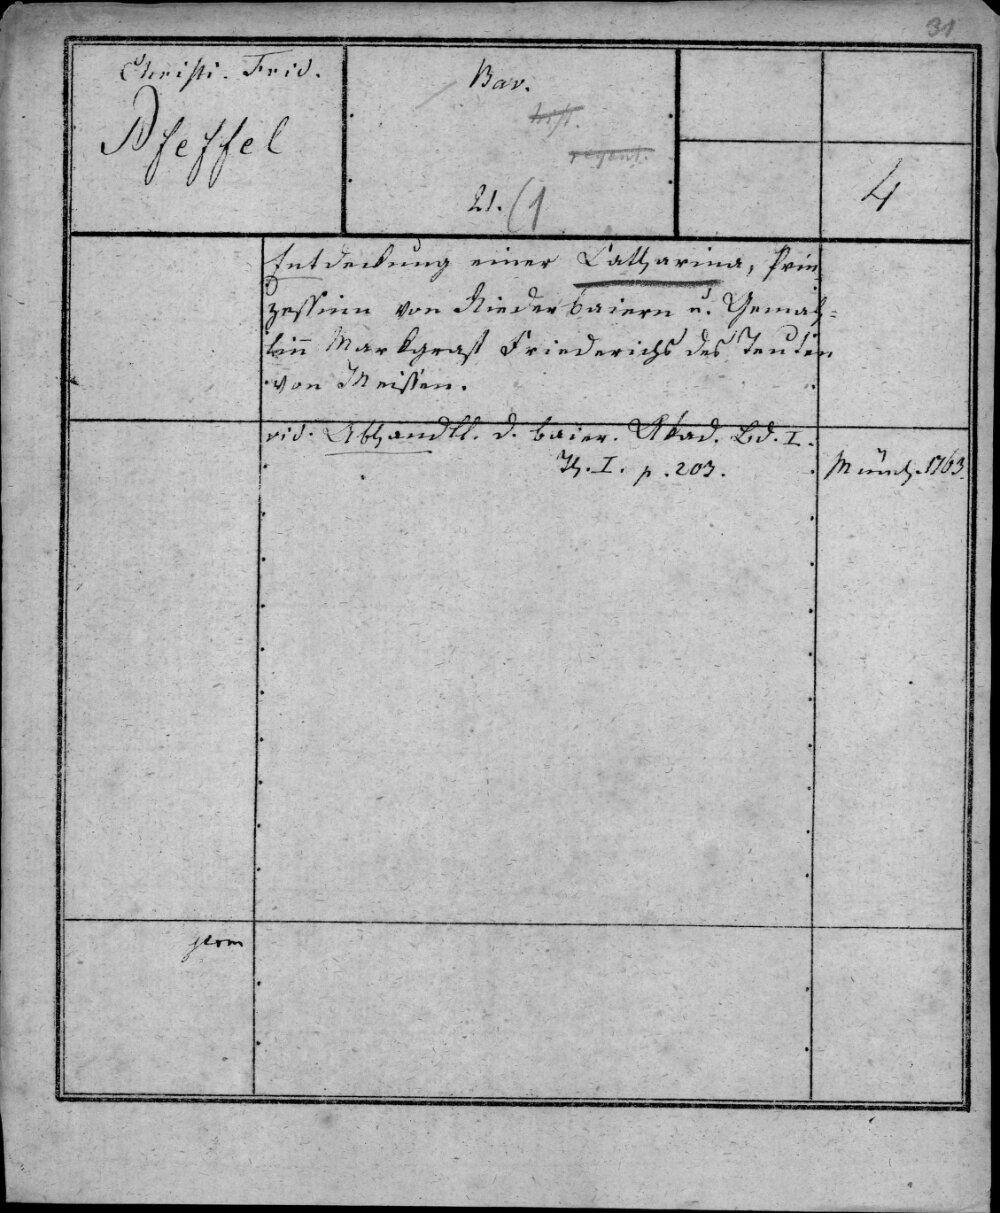 31
Christi. Frid.
Pfeffel
Bav.
hist.
regent.
21. (1
4
Entdeckung einer Catharina, Prin
zessinn von Niederbaiern u. Gemah=
linn Markgraf Friederichs des Teuten
von Meissen.
vid. Abhandll. d. baier. Akad. Bd. I.
Th. I. p. 203.
Münch. 1763.